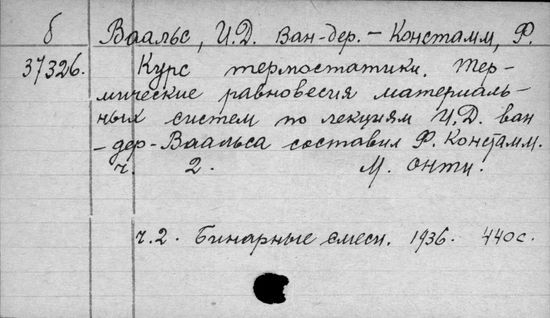 б Ваальс, И.Д. Ван-дер. - Констамм, Ф.
37326. Курс термостатики. Тер-
мические равновесия материаль-
ных систем по лекциям И.Д. ван
-дер-Ваальса составил Ф. Констамм.
ч. 2. М. Онти.
ч.2. Бинарные смеси. 1936. 440 с.